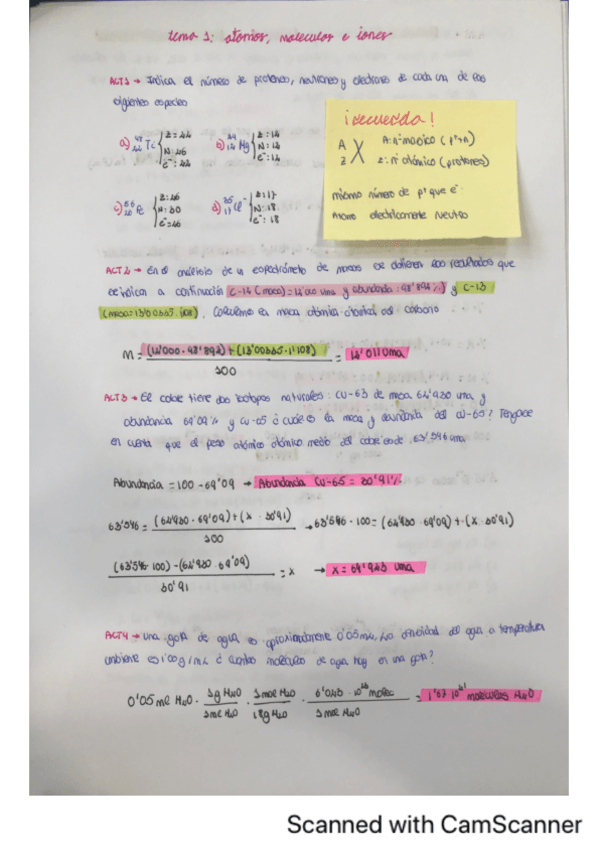 tema 1: átomos, moleculas e iones
ACT1 → Indica el número de protones, neutrones y electrones de cada una de las
siguientes especies
a) Tc { Z: 44
e⁻: 44
b) Mg { Z: 12
N: 12
e⁻: 12
c) Fe { Z: 26
N: 30
e⁻: 26
d) Cl⁻ { Z: 17
N: 18
e⁻: 18
¡recuerda!
A X
Z
A: nº másico (p⁺+n)
Z: nº atómico (protones)
mismo número de p⁺ que e⁻
átomo eléctricamente neutro
ACT2 → En el análisis de un espectrómetro de masas se obtienen los resultados que
se indican a continuación (masa) y abundancia: 98'892%) y C-13
Calcúlense la masa atómica del carbono
M = (12'000 · 98'892) + (13'00335 · 1'108) / 100 = 12'011 uma
ACT3 → El cobre tiene dos isótopos naturales: Cu-63 de masa 62'930 uma, y
abundancia 69'09% y Cu-65 ¿cuál es la masa y abundancia del Cu-65? Téngase
en cuenta que el peso atómico medio del cobre es de 63'546 uma
Abundancia = 100 - 69'09 → Abundancia Cu-65 = 30'91%
63'546 = (62'930 · 69'09) + (x · 30'91) / 100 → 63'546 · 100 = (62'930 · 69'09) + (x · 30'91)
(63'546 · 100) - (62'930 · 69'09) / 30'91 = x → x = 64'923 uma
ACT4 → Una gota de agua es aproximadamente 0'05 mL, la densidad del agua a temperatura
ambiente es 1'00 g/mL ¿cuántas moléculas de agua hay en una gota?
0'05 mL H₂O · 1g H₂O / 1mL H₂O · 1mol H₂O / 18g H₂O · 6'023 · 10²³ molec / 1mol H₂O = 1'67·10²¹ moléculas H₂O
Scanned with CamScanner